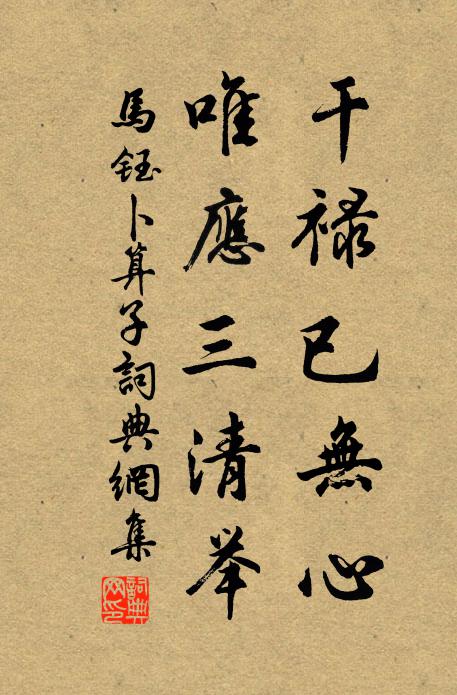 干禄已無心
唯應三清举
馬鈺卜算子詞典網集
詞典网印